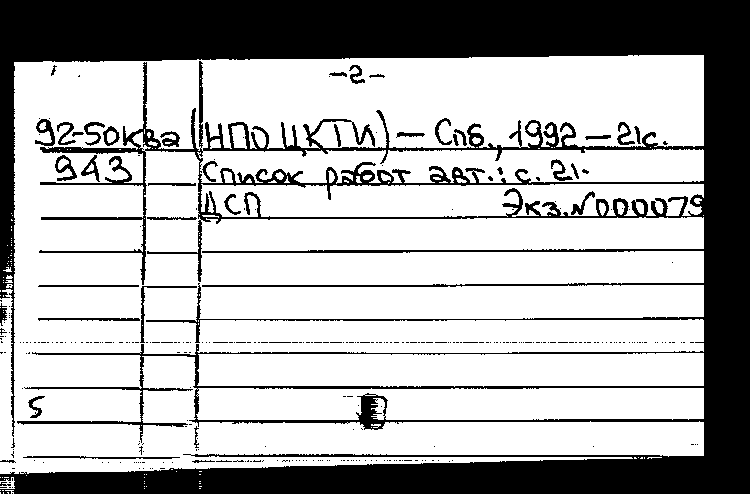 -2-
92-50ква (НПО ЦКТИ) — Спб., 1992. — 21с.
943 Список работ авт.: с. 21.
ДСП Экз. №000079
5